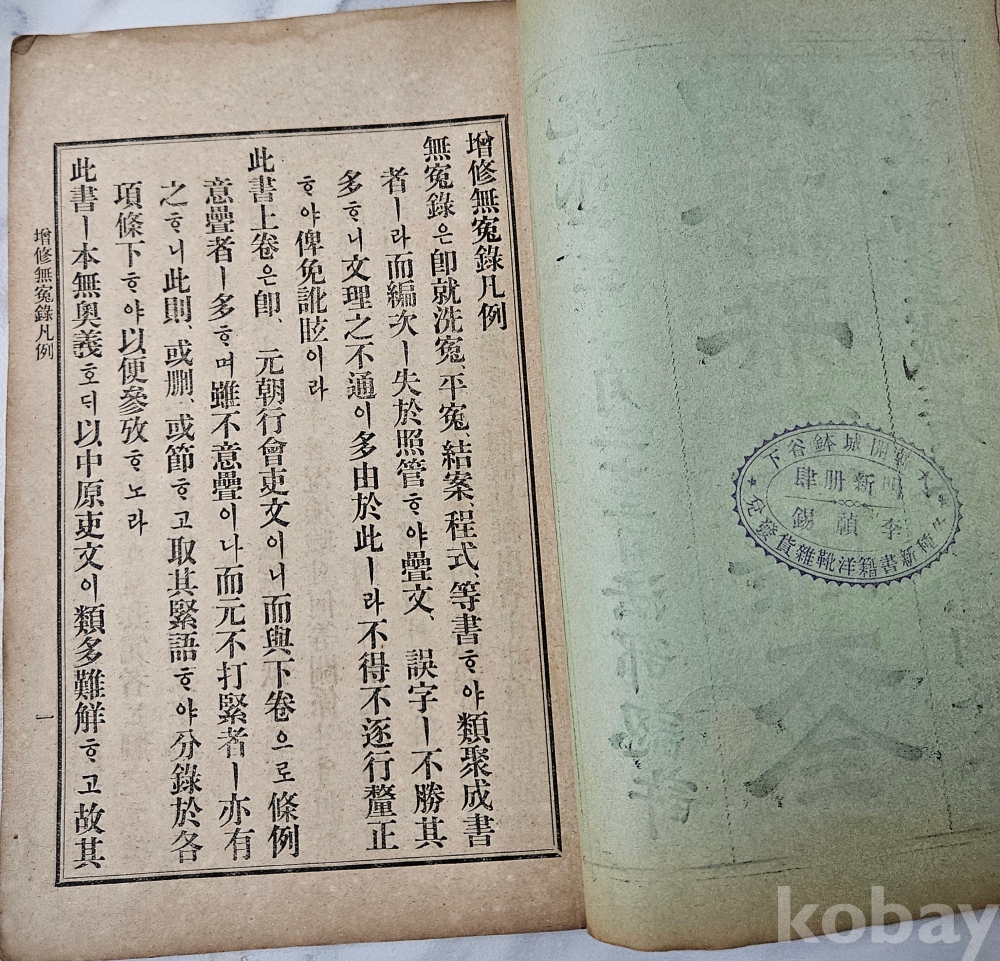 增修無冤錄凡例
無冤錄은卽就洗冤、平冤、結案、程式、等書ᄒᆞ야類聚成書
者ㅣ라而編次ㅣ失於照管ᄒᆞ야疊文、誤字ㅣ不勝其
多ᄒᆞ니文理之不通이多由於此ㅣ라不得不逐行釐正
ᄒᆞ야俾免訛眩이라
此書上卷은卽、元朝行會吏文이니而與下卷으로條例
意疊者ㅣ多ᄒᆞ며雖不意疊이나而元不打緊者ㅣ亦有
之ᄒᆞ니此則、或删、或節ᄒᆞ고取其緊語ᄒᆞ야分錄於各
項條下ᄒᆞ야以便參攷ᄒᆞ노라
此書ㅣ本無奧義호ᄃᆡ、以中原吏文이類多難解ᄒᆞ고故其
增修無冤錄凡例
一
大韓開城鉢谷下
新册肆
李禎錫
新書籍洋靴雜貨發兌
kobay